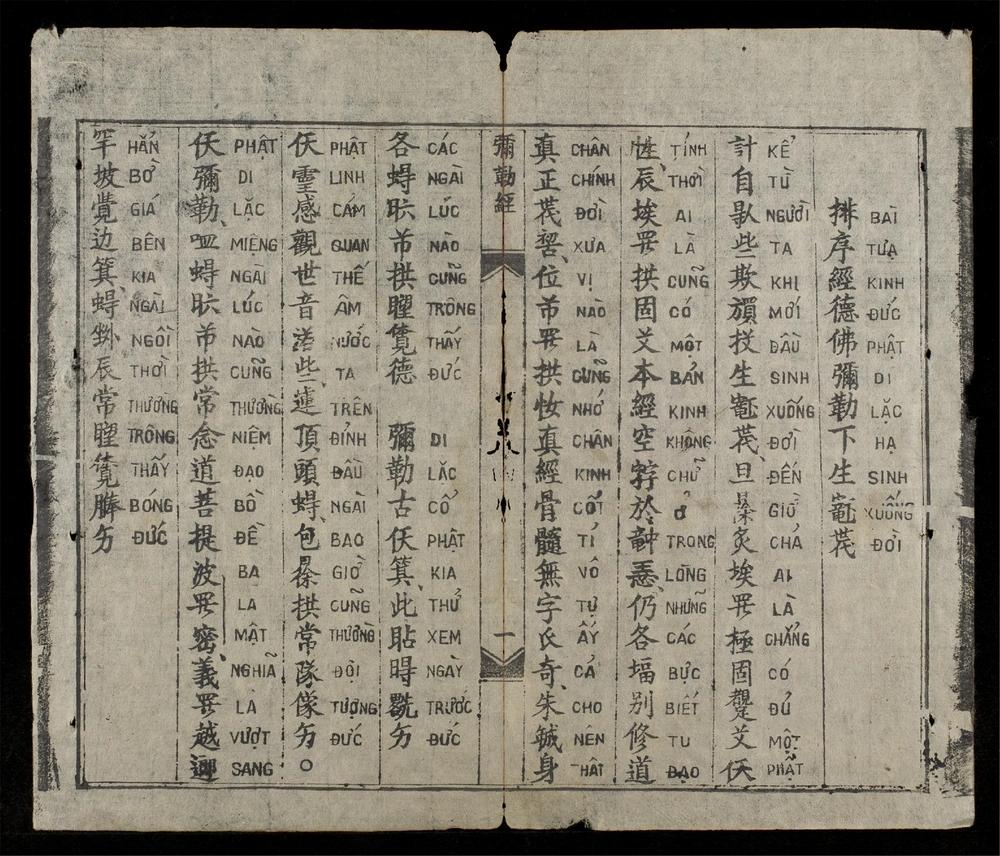 排序經德佛彌勒下生𡨺𠁀
BÀI TỰA KINH ĐỨC PHẬT DI LẶC HẠ SINH XUỐNG ĐỜI
計自𠊛些欺𬽗投生𡨺𠁀、旦𣇞炙埃罒極固𨇜爻伏
KỂ TỪ NGƯỜI TA KHI MỚI ĐẦU SINH XUỐNG ĐỜI ĐẾN GIỜ CHẢ AI LÀ CHẲNG CÓ ĐỦ MỘT PHẬT
性、辰埃罒拱固爻本經空𡨸於𢚸、仍各幅别修道
TÍNH THỜI AI LÀ CŨNG CÓ MỘT BẢN KINH KHÔNG CHỮ Ở TRONG LÒNG NHỮNG CÁC BỰC BIẾT TU ĐẠO
真正𠁀、位芇罒拱汝真經骨髓無字氏奇、朱𢧚身
CHÂN CHÍNH ĐỜI XƯA VỊ NÀO LÀ CŨNG NHỚ CHÂN KINH CỐT TỈ VÔ TỰ ẤY CẢ CHO NÊN THÂI
彌勒經
一
各䗟㫻芇拱𥊣覓德 彌勒古伏箕、此貼時𠓀𠃣
CÁC NGÀI LÚC NÀO CŨNG TRÔNG THẤY ĐỨC DI LẶC CỔ PHẬT KIA THỬ XEM NGÀY TRƯỚC ĐỨC
伏𩄇感觀世音渃些、𨕭頂頭䗟、包𣇞拱常隊像𠃣○
PHẬT LINH CẢM QUAN THẾ ÂM NƯỚC TA TRÊN ĐỈNH ĐẦU NGÀI BAO GIỜ CŨNG THƯỜNG ĐỘI TƯỢNG ĐỨC
伏彌勒、𠰘䗟㫻芇拱常念道菩提波罒密、義罒越𨖅
PHẬT DI LẶC MIỆNG NGÀI LÚC NÀO CŨNG THƯỜNG NIỆM ĐẠO BỒ ĐỀ BA LA MẬT NGHĨA LÀ VƯỢT SANG
罕坡覺边箕、䗟𡎥辰常𥊣覓𩃳𠃣
HẲN BỜ GIÁ BÊN KIA NGÀI NGỒI THỜI THƯỜNG TRÔNG THẤY BÓNG ĐỨC